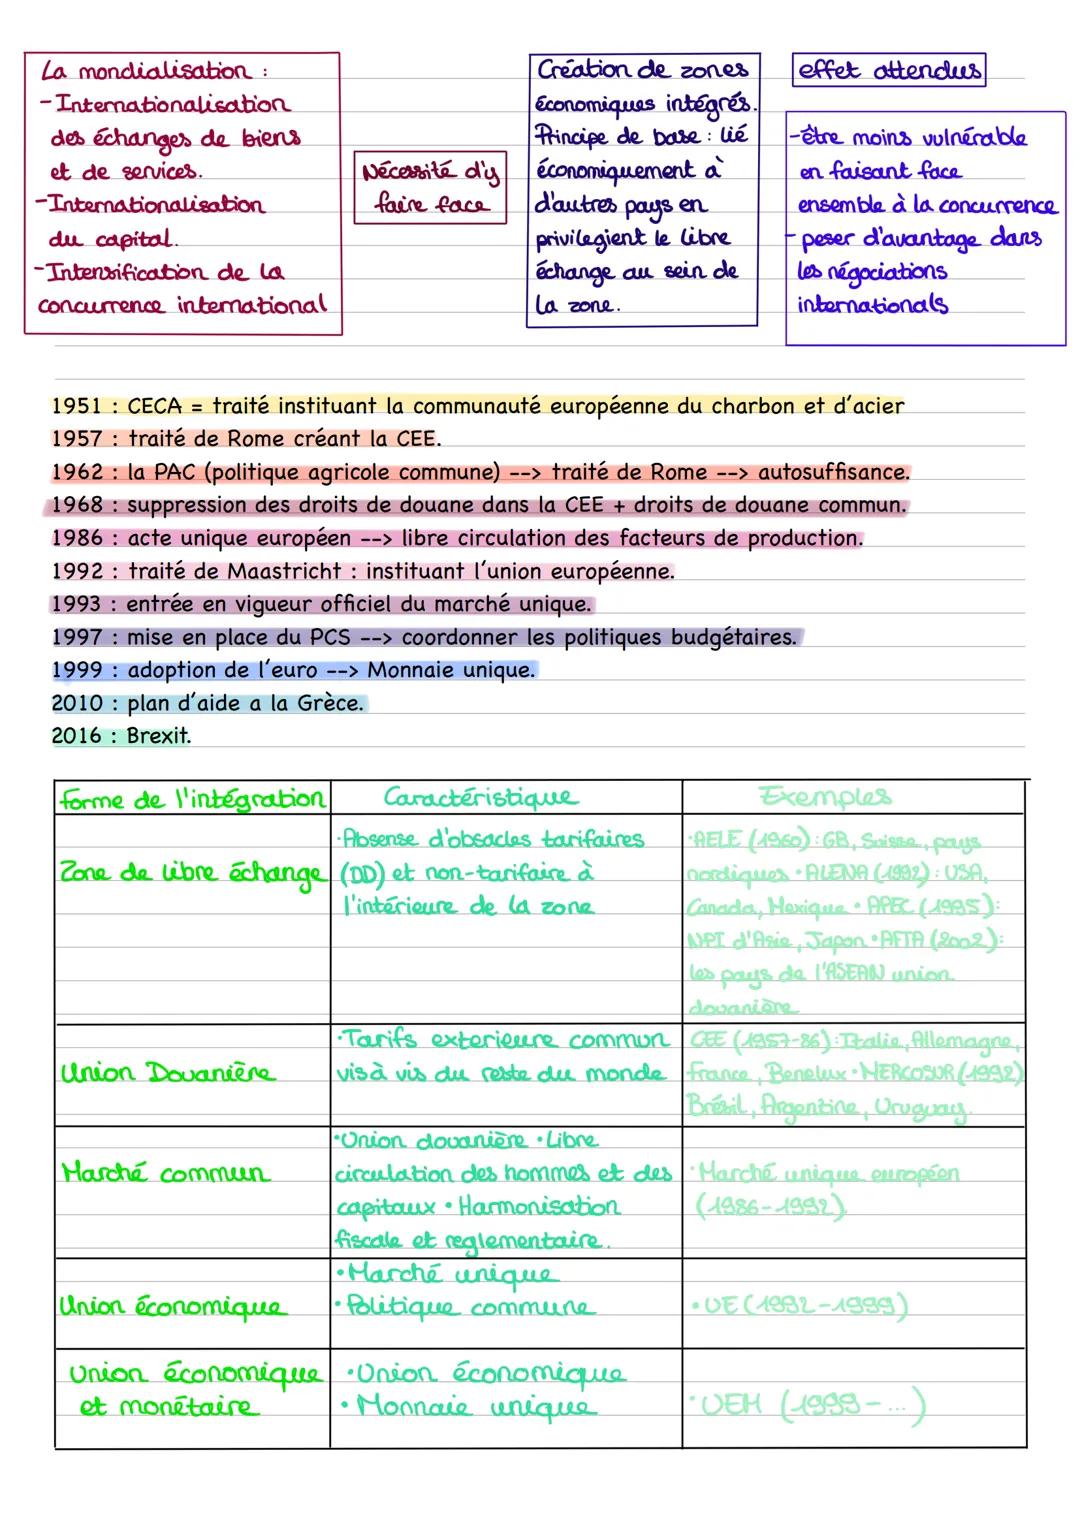 La mondialisation :
-Internationalisation
des échanges de biens
et de services.
-Internationalisation
du capital.
-Intensification de la
concurrence international
Nécessité d'y
faire face
Création de zones
économiques intégrés.
Principe de base : lié
économiquement à
d'autres pays en
privilegient le libre
échange au sein de
la zone.
effet attendus
-être moins vulnérable
en faisant face
ensemble à la concurrence
- peser d'avantage dans
les négociations
internationals
1951 : CECA = traité instituant la communauté européenne du charbon et d'acier
1957 : traité de Rome créant la CEE.
1962 : la PAC (politique agricole commune) --> traité de Rome --> autosuffisance.
1968 : suppression des droits de douane dans la CEE + droits de douane commun.
1986 : acte unique européen --> libre circulation des facteurs de production.
1992 : traité de Maastricht : instituant l'union européenne.
1993 : entrée en vigueur officiel du marché unique.
1997 : mise en place du PCS --> coordonner les politiques budgétaires.
1999 : adoption de l'euro --> Monnaie unique.
2010 : plan d'aide a la Grèce.
2016 : Brexit.
forme de l'intégration
Caractéristique
Exemples
Zone de libre échange
•Absense d'obsacles tarifaires
(DD) et non-tarifaire à
l'intérieure de la zone
•AELE (1960) : GB, Suisse, pays
nordiques • ALENA (1992) : USA,
Canada, Mexique • APEC (1995) :
NPI d'Asie, Japon • AFTA (2002) :
les pays de l'ASEAN union
douanière
Union Douanière
•Tarifs exterieure commun
vis à vis du reste du monde
CEE (1957-86) : Italie, Allemagne,
France, Benelux • MERCOSUR (1992)
Brésil, Argentine, Uruguay.
Marché commun
•Union douanière • Libre
circulation des hommes et des
capitaux • Harmonisation
fiscale et reglementaire.
•Marché unique européen
(1986-1992)
Union économique
•Marché unique
•Politique commune
•UE (1992-1999)
Union économique
et monétaire
•Union économique
•Monnaie unique
•UEM (1999-...)